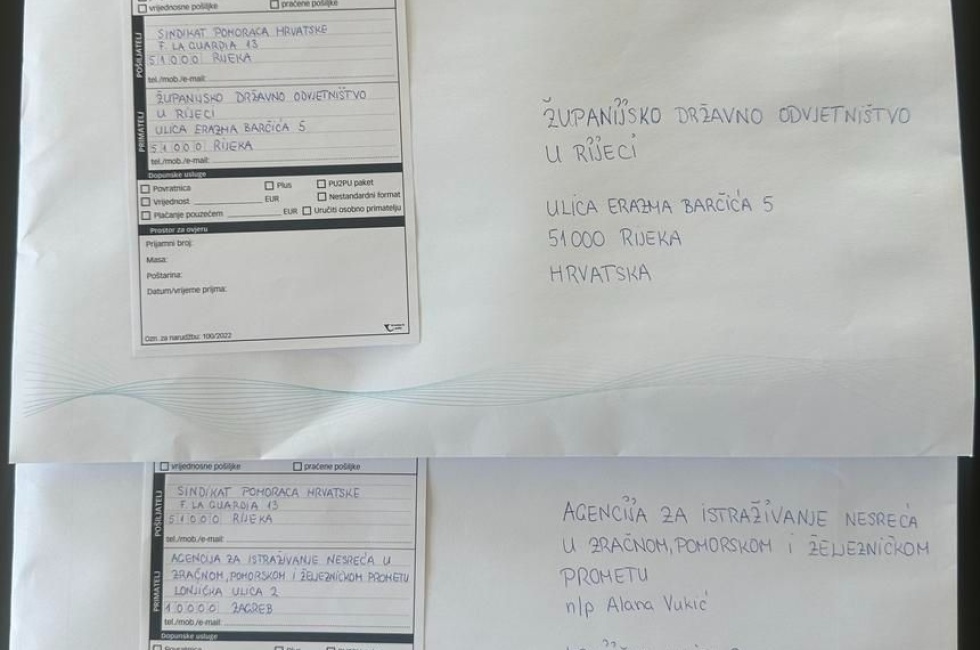 vrijednosne pošiljke
praćene pošiljke
POŠILJATELJ
SINDIKAT POMORACA HRVATSKE
F. LA GUARDIA 13
51000 RIJEKA
tel./mob./e-mail:
PRIMATELJ
ŽUPANIJSKO DRŽAVNO ODVJETNIŠTVO
U RIJECI
ULICA ERAZMA BARČIĆA 5
51000 RIJEKA
tel./mob./e-mail:
Dopunske usluge
Povratnica
Plus
PU2PU paket
Vrijednost EUR
Nestandardni format
Plaćanje pouzećem EUR
Uručiti osobno primatelju
Prostor za ovjeru
Prijamni broj:
Masa:
Poštarina:
Datum/vrijeme prijma:
Ozn. za narudžbu: 100/2022
ŽUPANIJSKO DRŽAVNO ODVJETNIŠTVO
U RIJECI
ULICA ERAZMA BARČIĆA 5
51000 RIJEKA
HRVATSKA
vrijednosne pošiljke
praćene pošiljke
POŠILJATELJ
SINDIKAT POMORACA HRVATSKE
F. LA GUARDIA 13
51000 RIJEKA
tel./mob./e-mail:
PRIMATELJ
AGENCIJA ZA ISTRAŽIVANJE NESREĆA U
ZRAČNOM, POMORSKOM I ŽELJEZNIČKOM PROMETU
LONJIČKA ULICA 2
10000 ZAGREB
tel./mob./e-mail:
Dopunske usluge
AGENCIJA ZA ISTRAŽIVANJE NESREĆA
U ZRAČNOM, POMORSKOM I ŽELJEZNIČKOM
PROMETU
n/p Alana Vukić